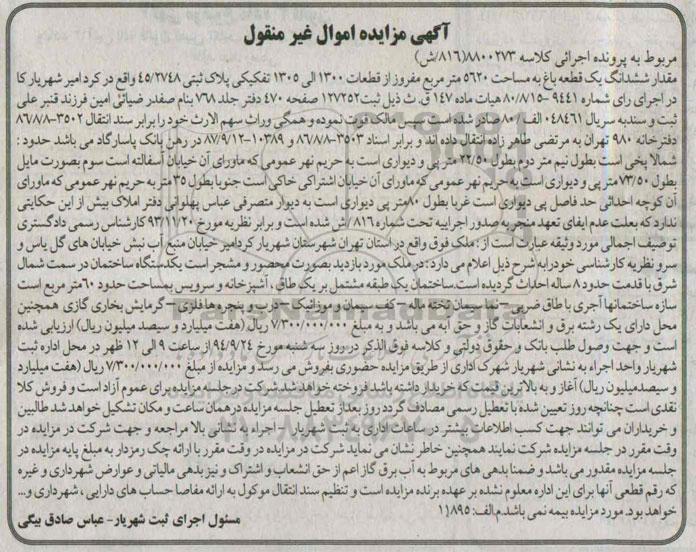 آگهی مزایده اموال غیر منقول
مربوط به پرونده اجرائی کلاسه ۸۸۰۰۲۷۳(۸۱۶/ش)
مقدار ششدانگ یک قطعه باغ به مساحت ۵۶۲۰ متر مربع مفروز از قطعات ۱۳۰۰ الی ۱۳۰۵ تفکیکی پلاک ثبتی ۴۵/۲۷۴۸ واقع در کرد امیر شهریار کا
در اجرای رای شماره ۹۴۴۱-۸۰/۸/۱۵ هیات ماده ۱۴۷ ق. ث ذیل ثبت ۱۲۷۲۵۲ صفحه ۴۷۰ دفتر جلد ۷۶۸ بنام صفدر ضیائی امین فرزند قنبر علی
ثبت و سند به سریال ۰۴۸۴۶۱ الف/۸۰ صادر شده است سپس مالک فوت نموده و همگی وراث سهم الارث خود را برابر سند انتقال ۳۵۰۲-۸۶/۸/۸
دفترخانه ۹۸۰ تهران به مرتضی طاهر زاده انتقال داده اند و برابر اسناد ۳۵۰۳-۸۶/۸/۸ و ۱۰۳۸۹-۸۷/۹/۱۲ در رهن بانک پاسارگاد می باشد حدود :
شمالا یخی است بطول نیم متر دوم بطول ۲۲/۵۰ متر پی و دیواری است به حریم نهر عمومی که ماورای آن خیابان آسفالته است سوم بصورت مایل
بطول ۷۳/۵۰ متر پی و دیواری است به حریم نهر عمومی که ماورای آن خیابان اشتراکی خاکی است جنوبا بطول ۳۵ متر به حریم نهر عمومی که ماورای
آن کوچه احداثی حد فاصل پی دیواری است غربا بطول ۸۰ متر پی دیواری است به دیوار متصرفی عباس پهلوانی دفتر املاک بیش از این حکایتی
ندارد که بعلت عدم ایفای تعهد منجر به صدور اجراییه تحت شماره ۸۱۶/ش شده است و برابر نظریه مورخ ۹۳/۱۱/۲۰ کارشناس رسمی دادگستری
توصیف اجمالی مورد وثیقه عبارت است از : ملک فوق واقع در استان تهران شهرستان شهریار کردامیر خیابان منبع آب نبش خیابان های گل یاس و
سرو نظریه کارشناسی خود را به شرح ذیل اعلام می دارد : در ملک مورد بازدید بصورت محصور و مشجر است یکدستگاه ساختمان در سمت شمال
شرق با قدمت حدود ۸ ساله احداث گردیده است. ساختمان یک طبقه مشتمل بر یک طاق ، آشپزخانه و سرویس بمساحت حدود ۶۰ متر مربع است
سازه ساختمانها آجری با طاق ضربی – نما سیمان تخته ماله – کف سیمان و موزائیک – درب و پنجره ها فلزی – گرمایش بخاری گازی همچنین
محل دارای یک رشته برق و انشعابات گاز و حق آبه می باشد و به مبلغ ۷/۳۰۰/۰۰۰/۰۰۰ ریال (هفت میلیارد و سیصد میلیون ریال) ارزیابی شده
است و جهت وصول طلب بانک و حقوق دولتی و کلاسه فوق الذکر در روز سه شنبه مورخ ۹۴/۹/۲۴ از ساعت ۹ الی ۱۲ ظهر در محل اداره ثبت
شهریار واحد اجراء به نشانی شهریار شهرک اداری از طریق مزایده حضوری بفروش می رسد و مزایده از مبلغ ۷/۳۰۰/۰۰۰/۰۰۰ ریال (هفت میلیارد
و سیصد میلیون ریال) آغاز و به بالاترین قیمت که خریدار داشته باشد فروخته خواهد شد. شرکت در جلسه مزایده برای عموم آزاد است و فروش کلا
نقدی است چنانچه روز تعیین شده با تعطیل رسمی مصادف گردد روز بعد از تعطیل جلسه مزایده در همان ساعت و مکان تشکیل خواهد شد طالبین
و خریداران می توانند جهت کسب اطلاعات بیشتر در ساعات اداری به ثبت شهریار – اجراء به نشانی بالا مراجعه و جهت شرکت در مزایده در
وقت مقرر در جلسه مزایده شرکت نمایند همچنین خاطر نشان می نماید شرکت در مزایده در وقت مقرر با ارائه چک رمزدار به مبلغ پایه مزایده در
جلسه مزایده مقدور می باشد و ضمنا بدهی های مربوط به آب برق گاز اعم از حق انشعاب و اشتراک و نیز بدهی مالیاتی و عوارض شهرداری و غیره
که رقم قطعی آنها برای این اداره معلوم نشده بر عهده برنده مزایده است و تنظیم سند انتقال موکول به ارائه مفاصا حساب های دارایی ، شهرداری و...
خواهد بود. مورد مزایده بیمه نمی باشد. م الف: ۱۸۹۵)
مسئول اجرای ثبت شهریار- عباس صادق بیگی
ParsNamadData
۰۲۱-۸۸۳۴۹۶۷۰-۵